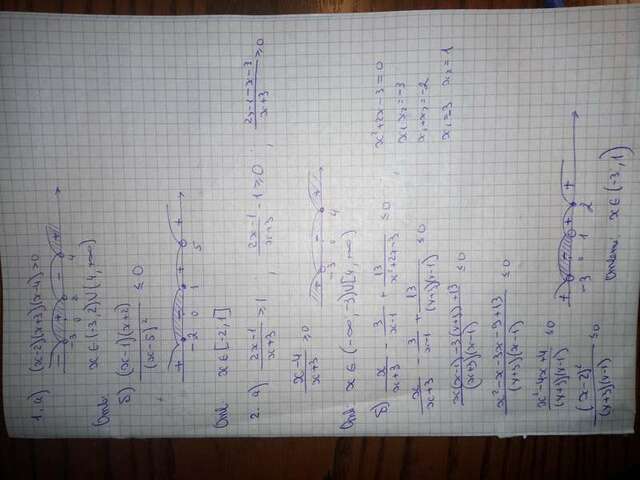 1. а) (x-2)(x+3)(x-4)>0
- + - +
-3 0 2 4
Отв. x∈(-3,2)∪(4,+∞)
б) (x-1)(x+2)/(x-5)² ≤ 0
+ - + +
-2 0 1 5
Отв. x∈[-2,1]
2. а) (2x-1)/(x+3) ≥ 1, (2x-1)/(x+3) - 1 ≥ 0, (2x-1-x-3)/(x+3) ≥ 0
(x-4)/(x+3) ≥ 0
+ - +
-3 0 4
Отв. x∈(-∞,-3)∪[4,∞)
б) x/(x+3) - 3/(x-1) + 13/(x²+2x-3) ≤ 0, x²+2x-3=0
x₁x₂=-3
x₁+x₂=-2
x₁=3 x₂=1
x/(x+3) - 3/(x-1) + 13/(x+3)(x-1) ≤ 0
(x(x-1)-3(x+3)+13)/(x+3)(x-1) ≤ 0
(x²-x-3x-9+13)/(x+3)(x-1) ≤ 0
(x²-4x+4)/(x+3)(x-1) ≤ 0
(x-2)²/(x+3)(x-1) ≤ 0
+ - + +
-3 0 1 2
Ответ: x∈(-3,1)